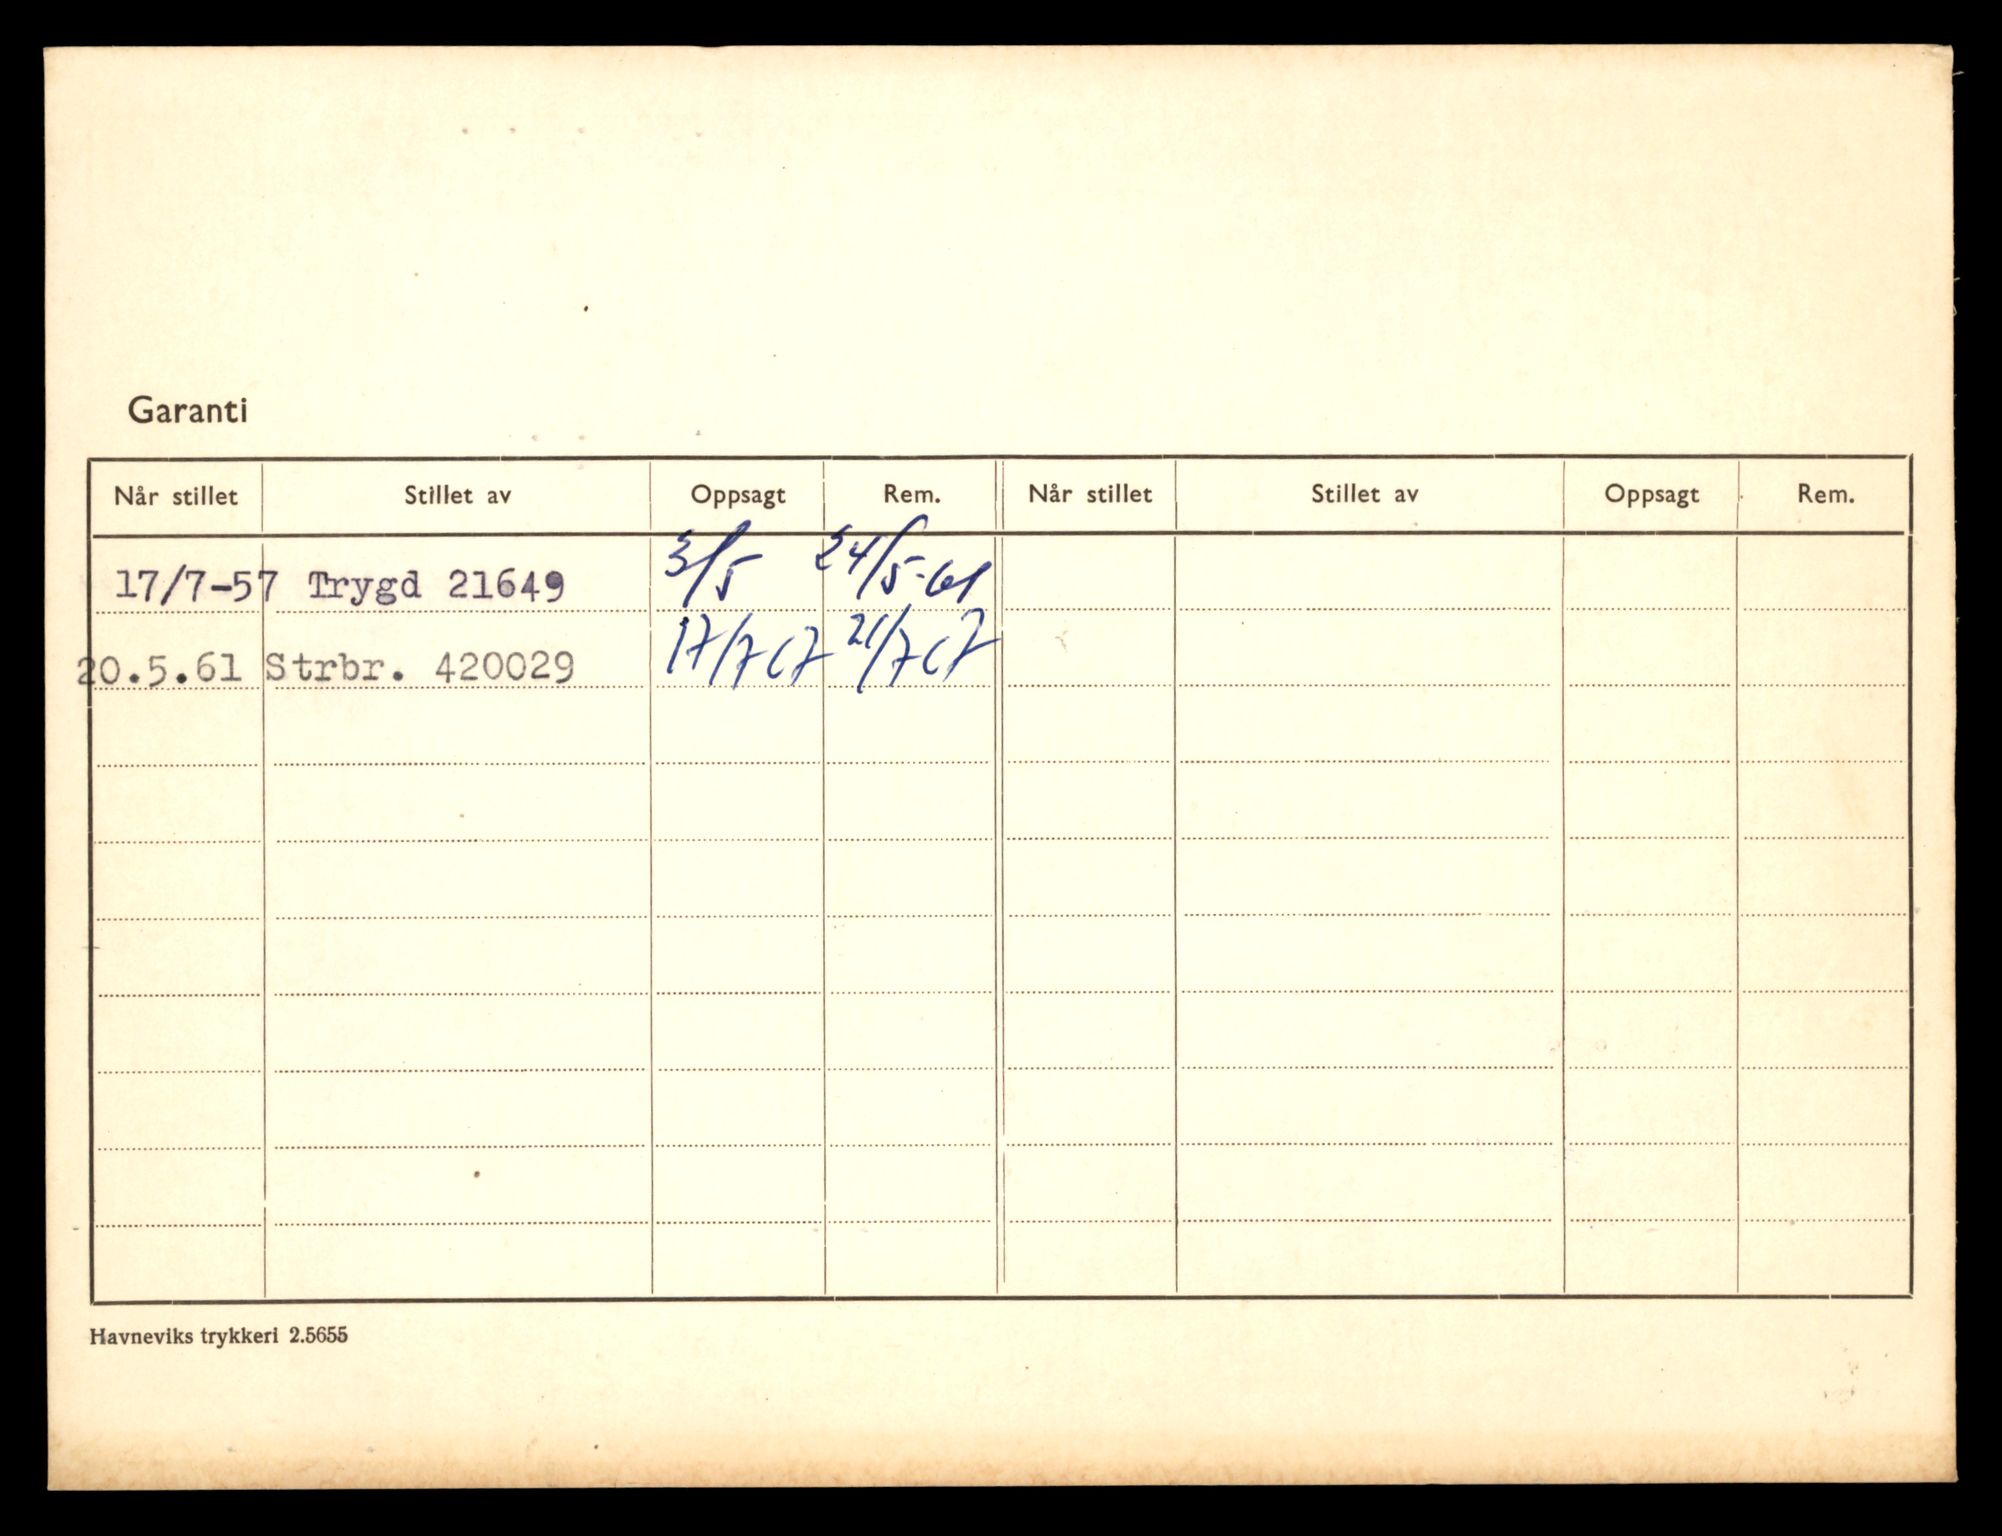 Garanti
Når stillet Stillet av Oppsagt Rem. Når stillet Stillet av Oppsagt Rem.
17/7-57 Trygd 21649 3/5 24/5-61
20.5.61 Strbr. 420029 17/7 67 21/7 67
Havneviks trykkeri 2.5655